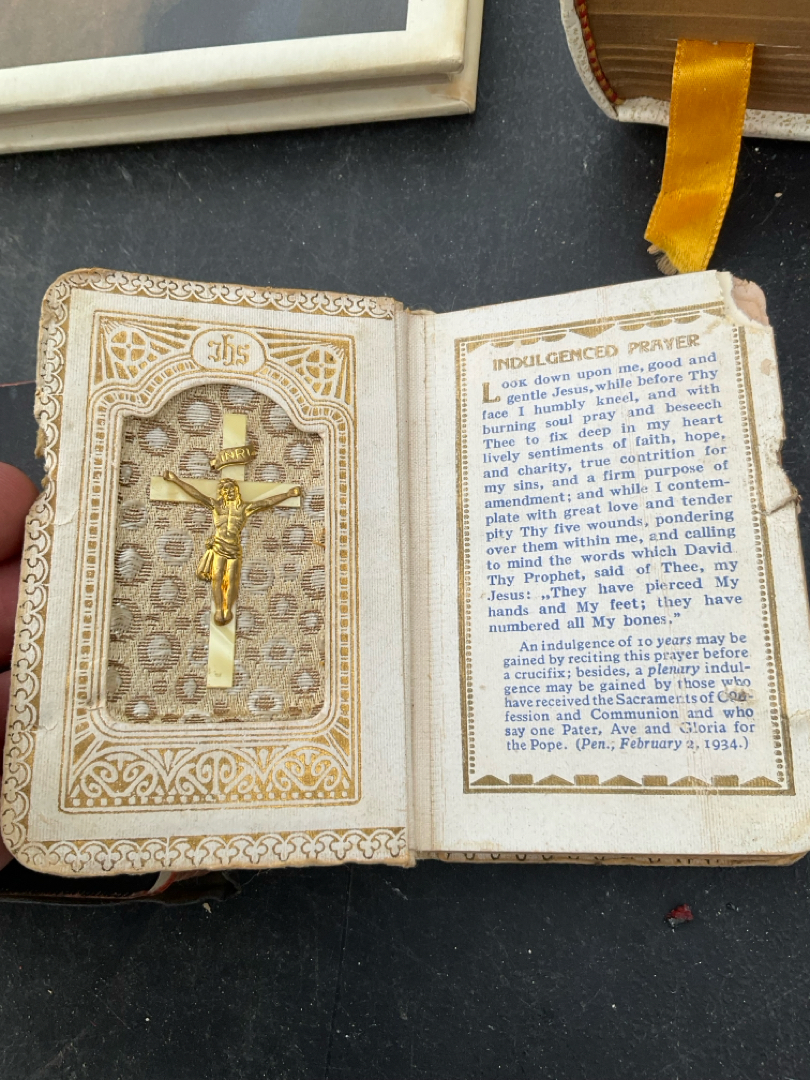 Ihs
INRI
INDULGENCED PRAYER
LOOK down upon me, good and
gentle Jesus, while before Thy
face I humbly kneel, and with
burning soul pray and beseech
Thee to fix deep in my heart
lively sentiments of faith, hope,
and charity, true contrition for
my sins, and a firm purpose of
amendment; and while I contem-
plate with great love and tender
pity Thy five wounds, pondering
over them within me, and calling
to mind the words which David
Thy Prophet, said of Thee, my
Jesus: „They have pierced My
hands and My feet; they have
numbered all My bones.”
An indulgence of 10 years may be
gained by reciting this prayer before
a crucifix; besides, a plenary indul-
gence may be gained by those who
have received the Sacraments of Con-
fession and Communion and who
say one Pater, Ave and Gloria for
the Pope. (Pen.; February 2, 1934.)